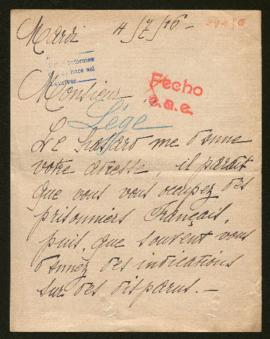 Mardi 4/7/16
Monsieur
Lége
Fecho
e.a.e.
Le hasard me donne
votre adresse, il parait
que vous vous occupez des
prisonniers Français,
puis, que souvent vous
donnez des indications
sur des disparus. —